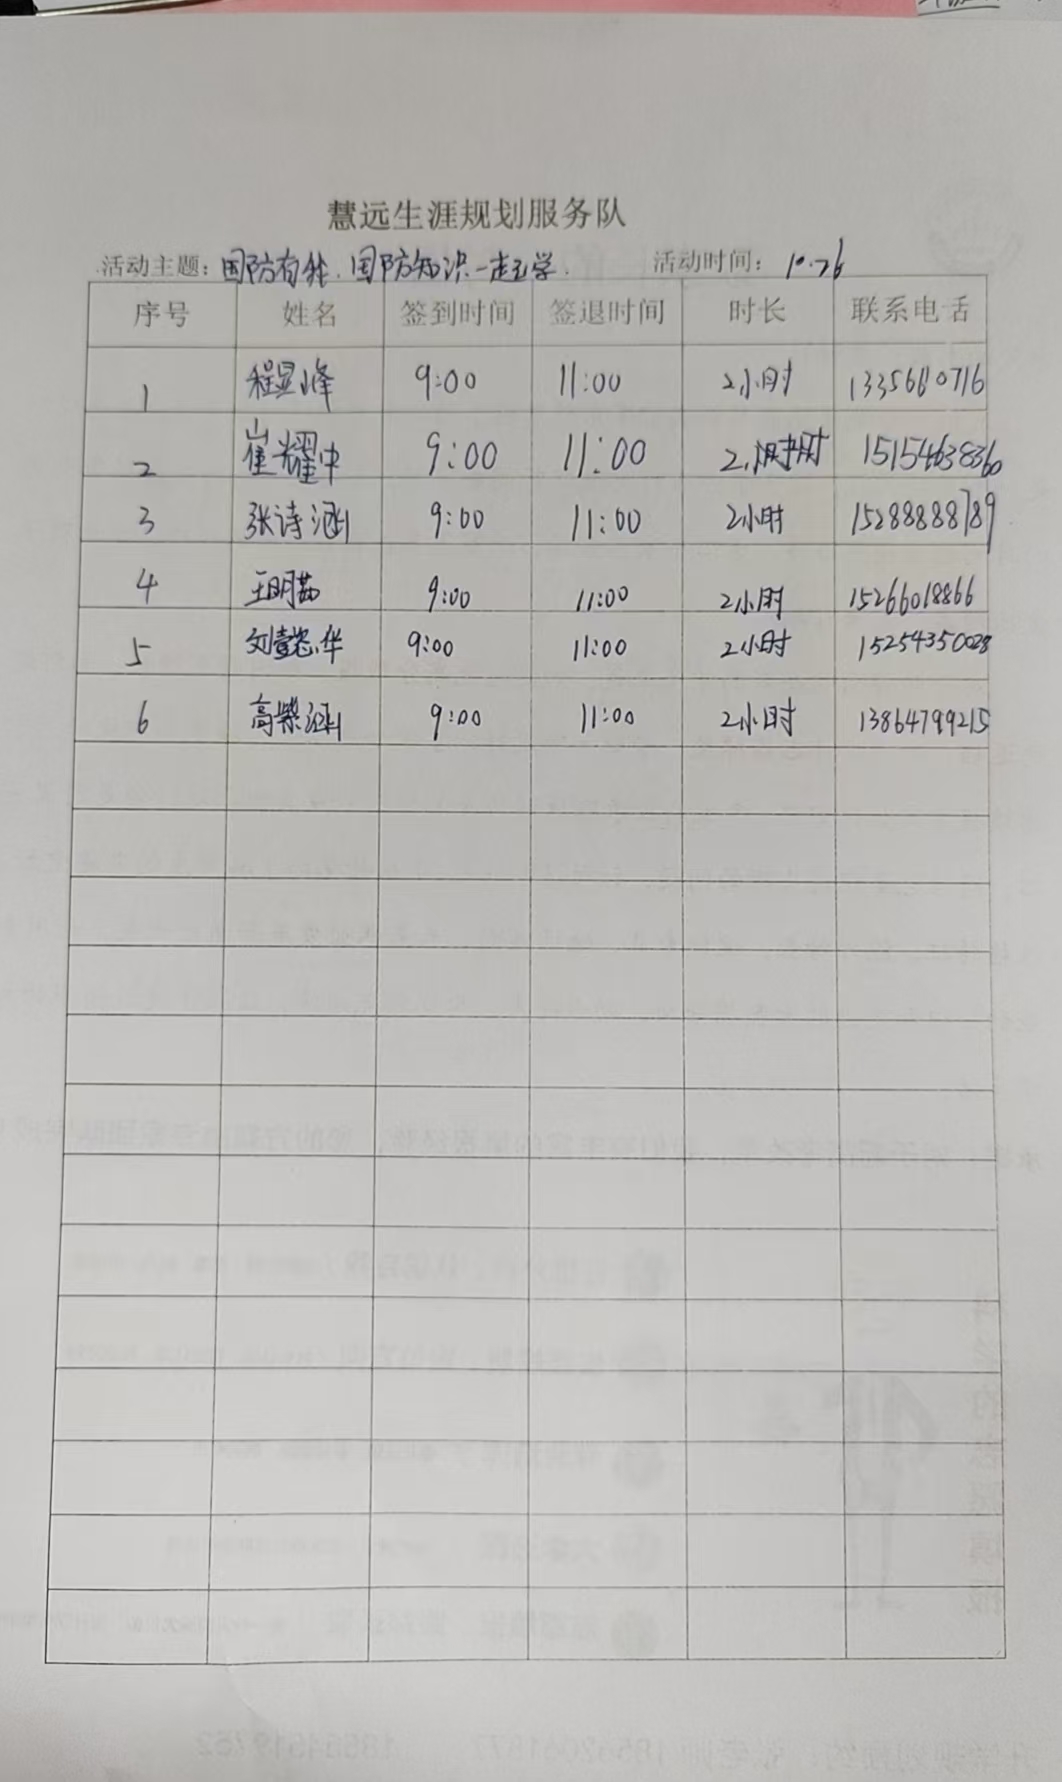 慧远生涯规划服务队
活动主题：国防有我，国防知识一起学. 活动时间：10.26
序号 姓名 签到时间 签退时间 时长 联系电话
1 程显峰 9:00 11:00 2小时
2 崔耀中 9:00 11:00 2小时 15154638360
3 张诗涵 9:00 11:00 2小时 15288888789
4 王明茹 9:00 11:00 2小时 15266018866
5 9:00 11:00 2小时 15254350028
6 高紫涵 9:00 11:00 2小时 13864799215